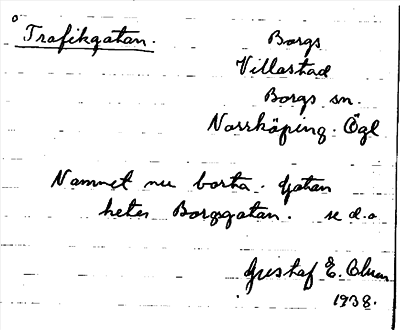 ° Trafikgatan.
Borgs
Villastad
Borgs sn.
Norrköping. Ögl
Namnet nu borta. Gatan
heter Borgsgatan. se d.o
Gustaf E.
1938.